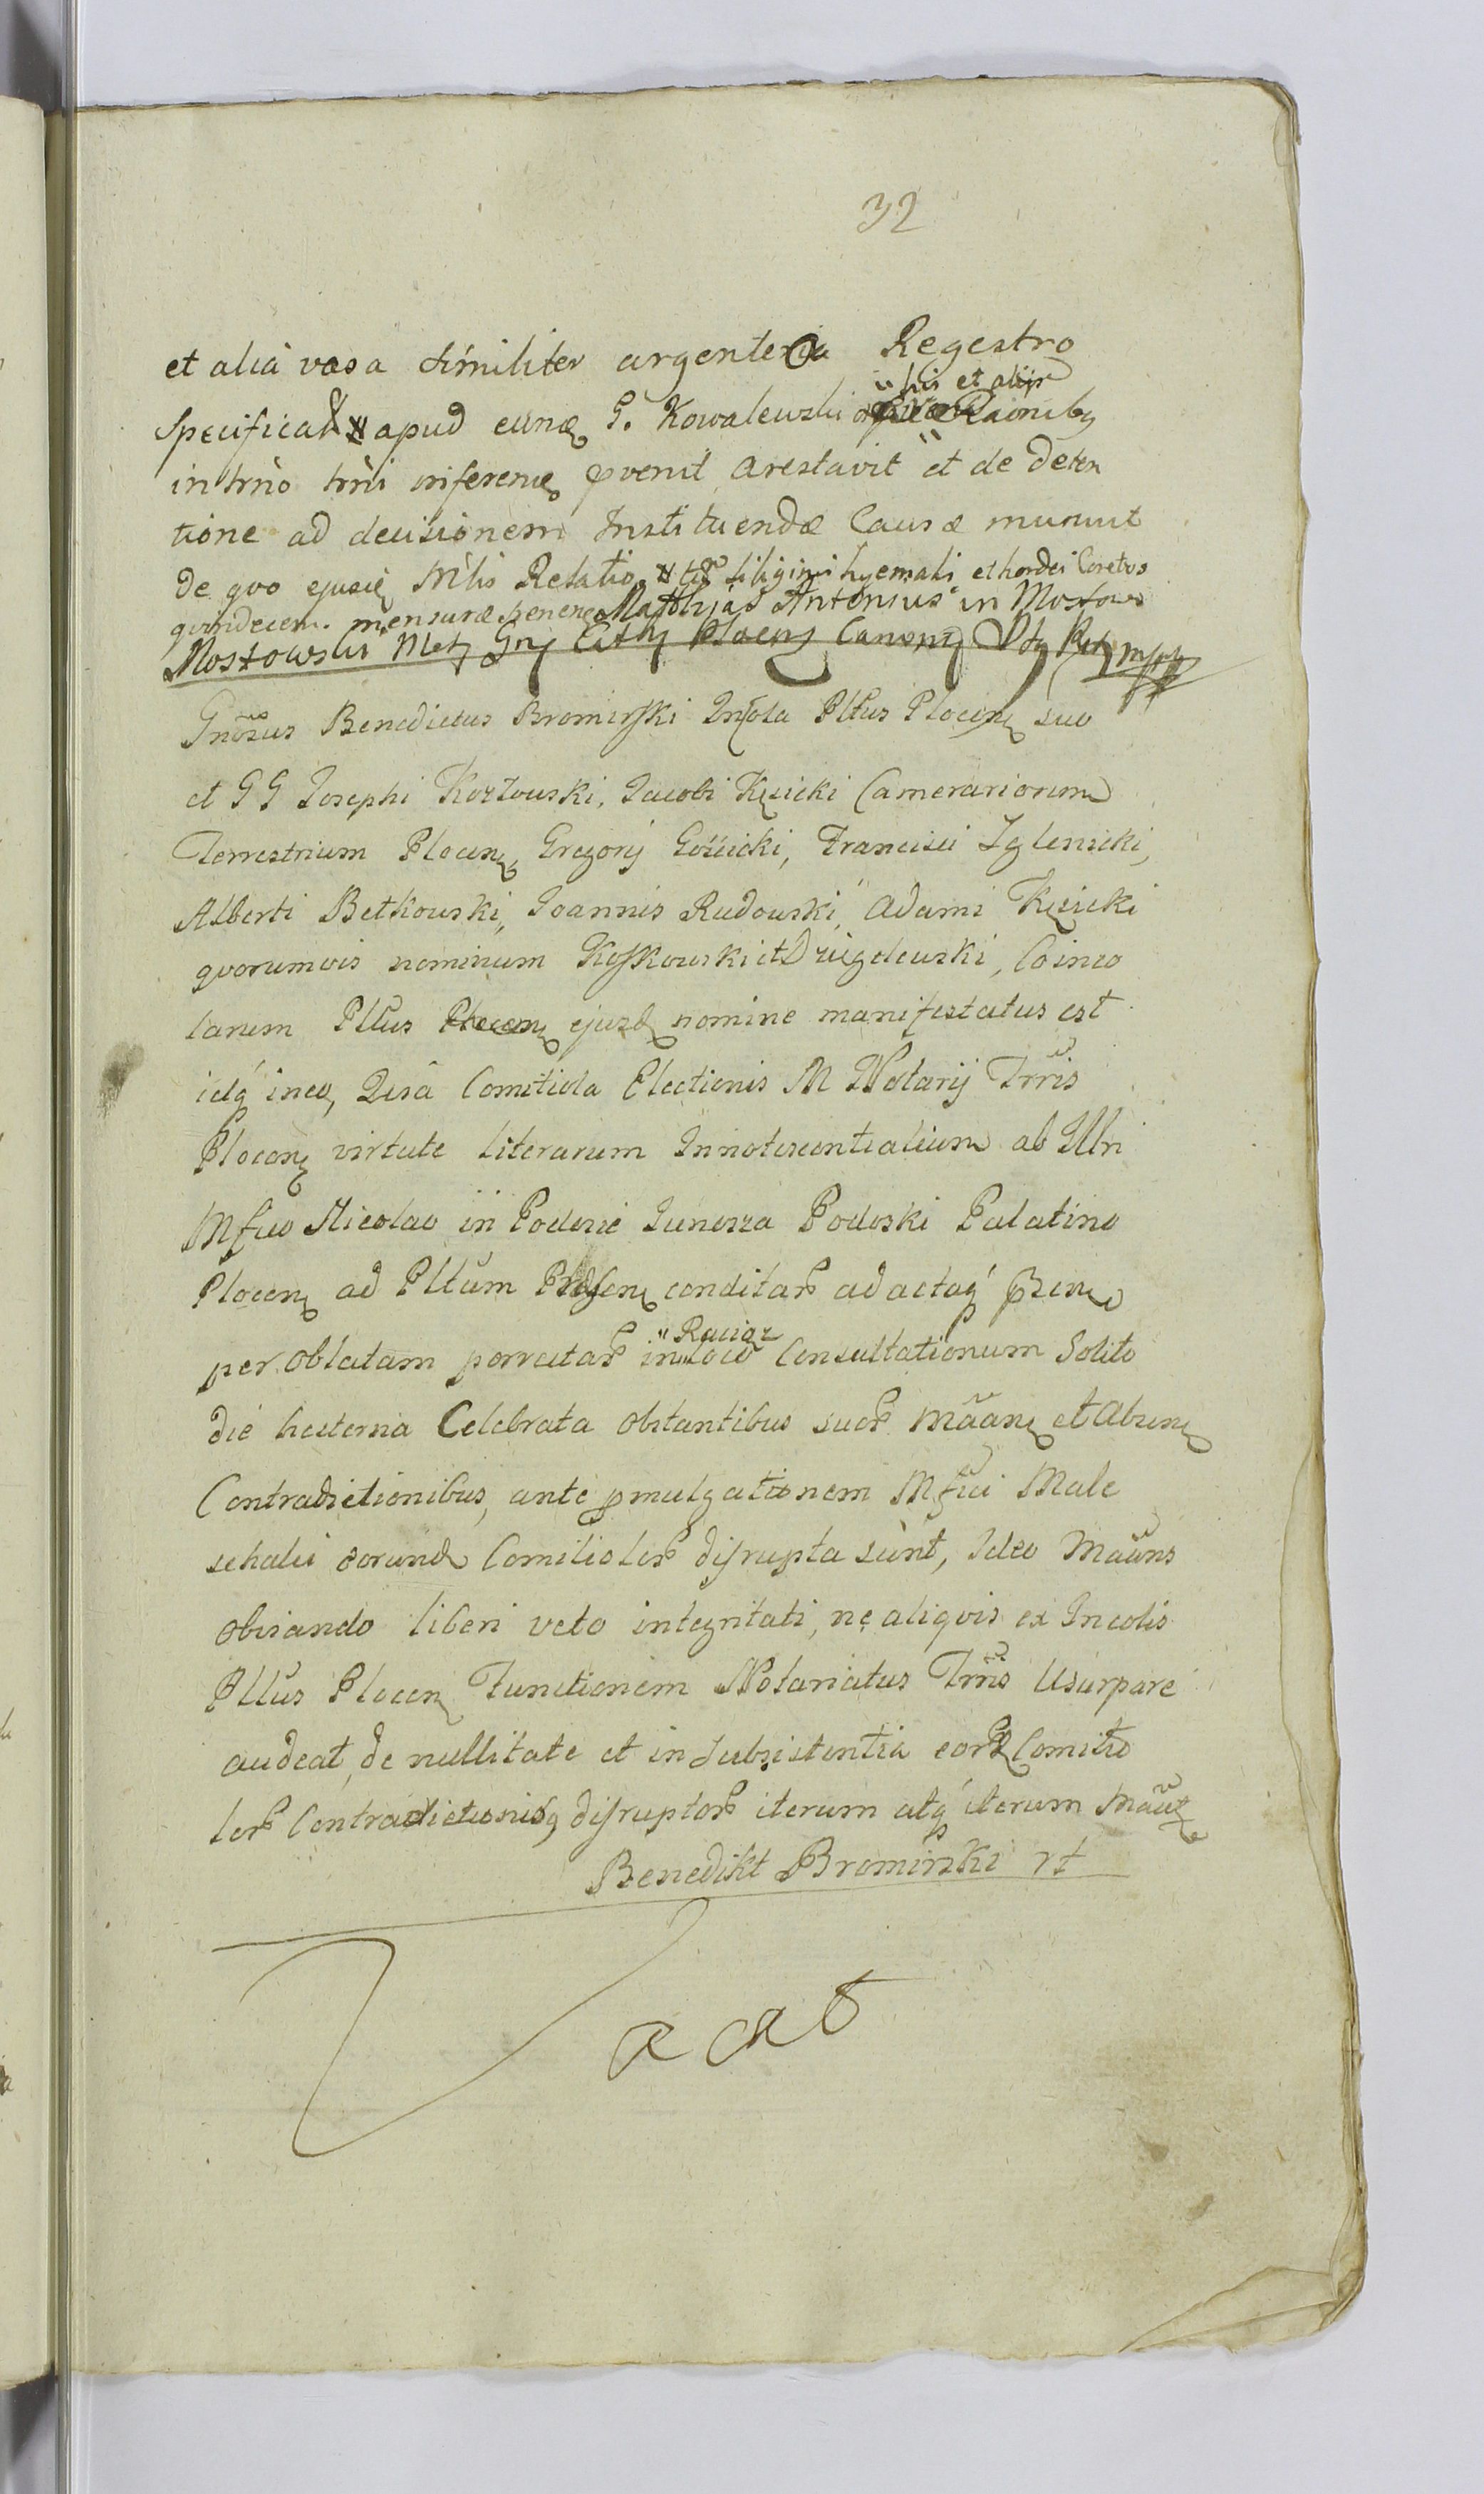 32
et alia vasa similiter argentea Regestro
his et aliis
Specificat apud eund G. Kowalewski Raonibq
in trno trni inferens pvenit arestavit et de deten
tione ad decisionem Instituendæ Causæ munivit
de quo ejusd Mlis Relatio siliginis hyemalis et hordei Coretos
quindecem mensuræ Matthias Antonius in Mostowo
Mostowski Canon
Gnosus Benedictus Bromirski Incola Pltus Plocen suo
et G G Josephi Kozłowski, Jacobi Kęsicki Camerariorum
Terrestrium Plocen, Gregorij Gościcki, Francisci Zglenicki,
Alberti Betkowski, Joannis Rudowski, Adami Kęsicki
quorumvis nominum Koskowski et Drugolewski, Coinco
larum Pltus Plocen ejusd nomine manifestatus est
idq ineo, Quia Comitiola Electionis M Notarij Trris
Plocen virtute literarum Innotescentialium ab Illri
Mfico Nicolao in Podosie Junosza Podoski Palatino
Plocen ad Pltum conditar ad actaq
Raciąz
per Oblatam porrectar in loco Consultationum Solito
die hesterna Celebrata obstantibus suor Maan et Absen
Contradictionibus, ante pmulgationem Mfici Male
schalci eorund Comitiolor disrupta sunt, Ideo Maans
obviando liberi veto integritati, ne aliqvis ex Incolis
Pltus Plocen Functionem Notariatus Trris Usurpare
audeat, de nullitate et in subsistentia eord Comitio
lor Contradictionibq disruptor iterum atq iterum Maat
Benedikt Bromirski
Vacat